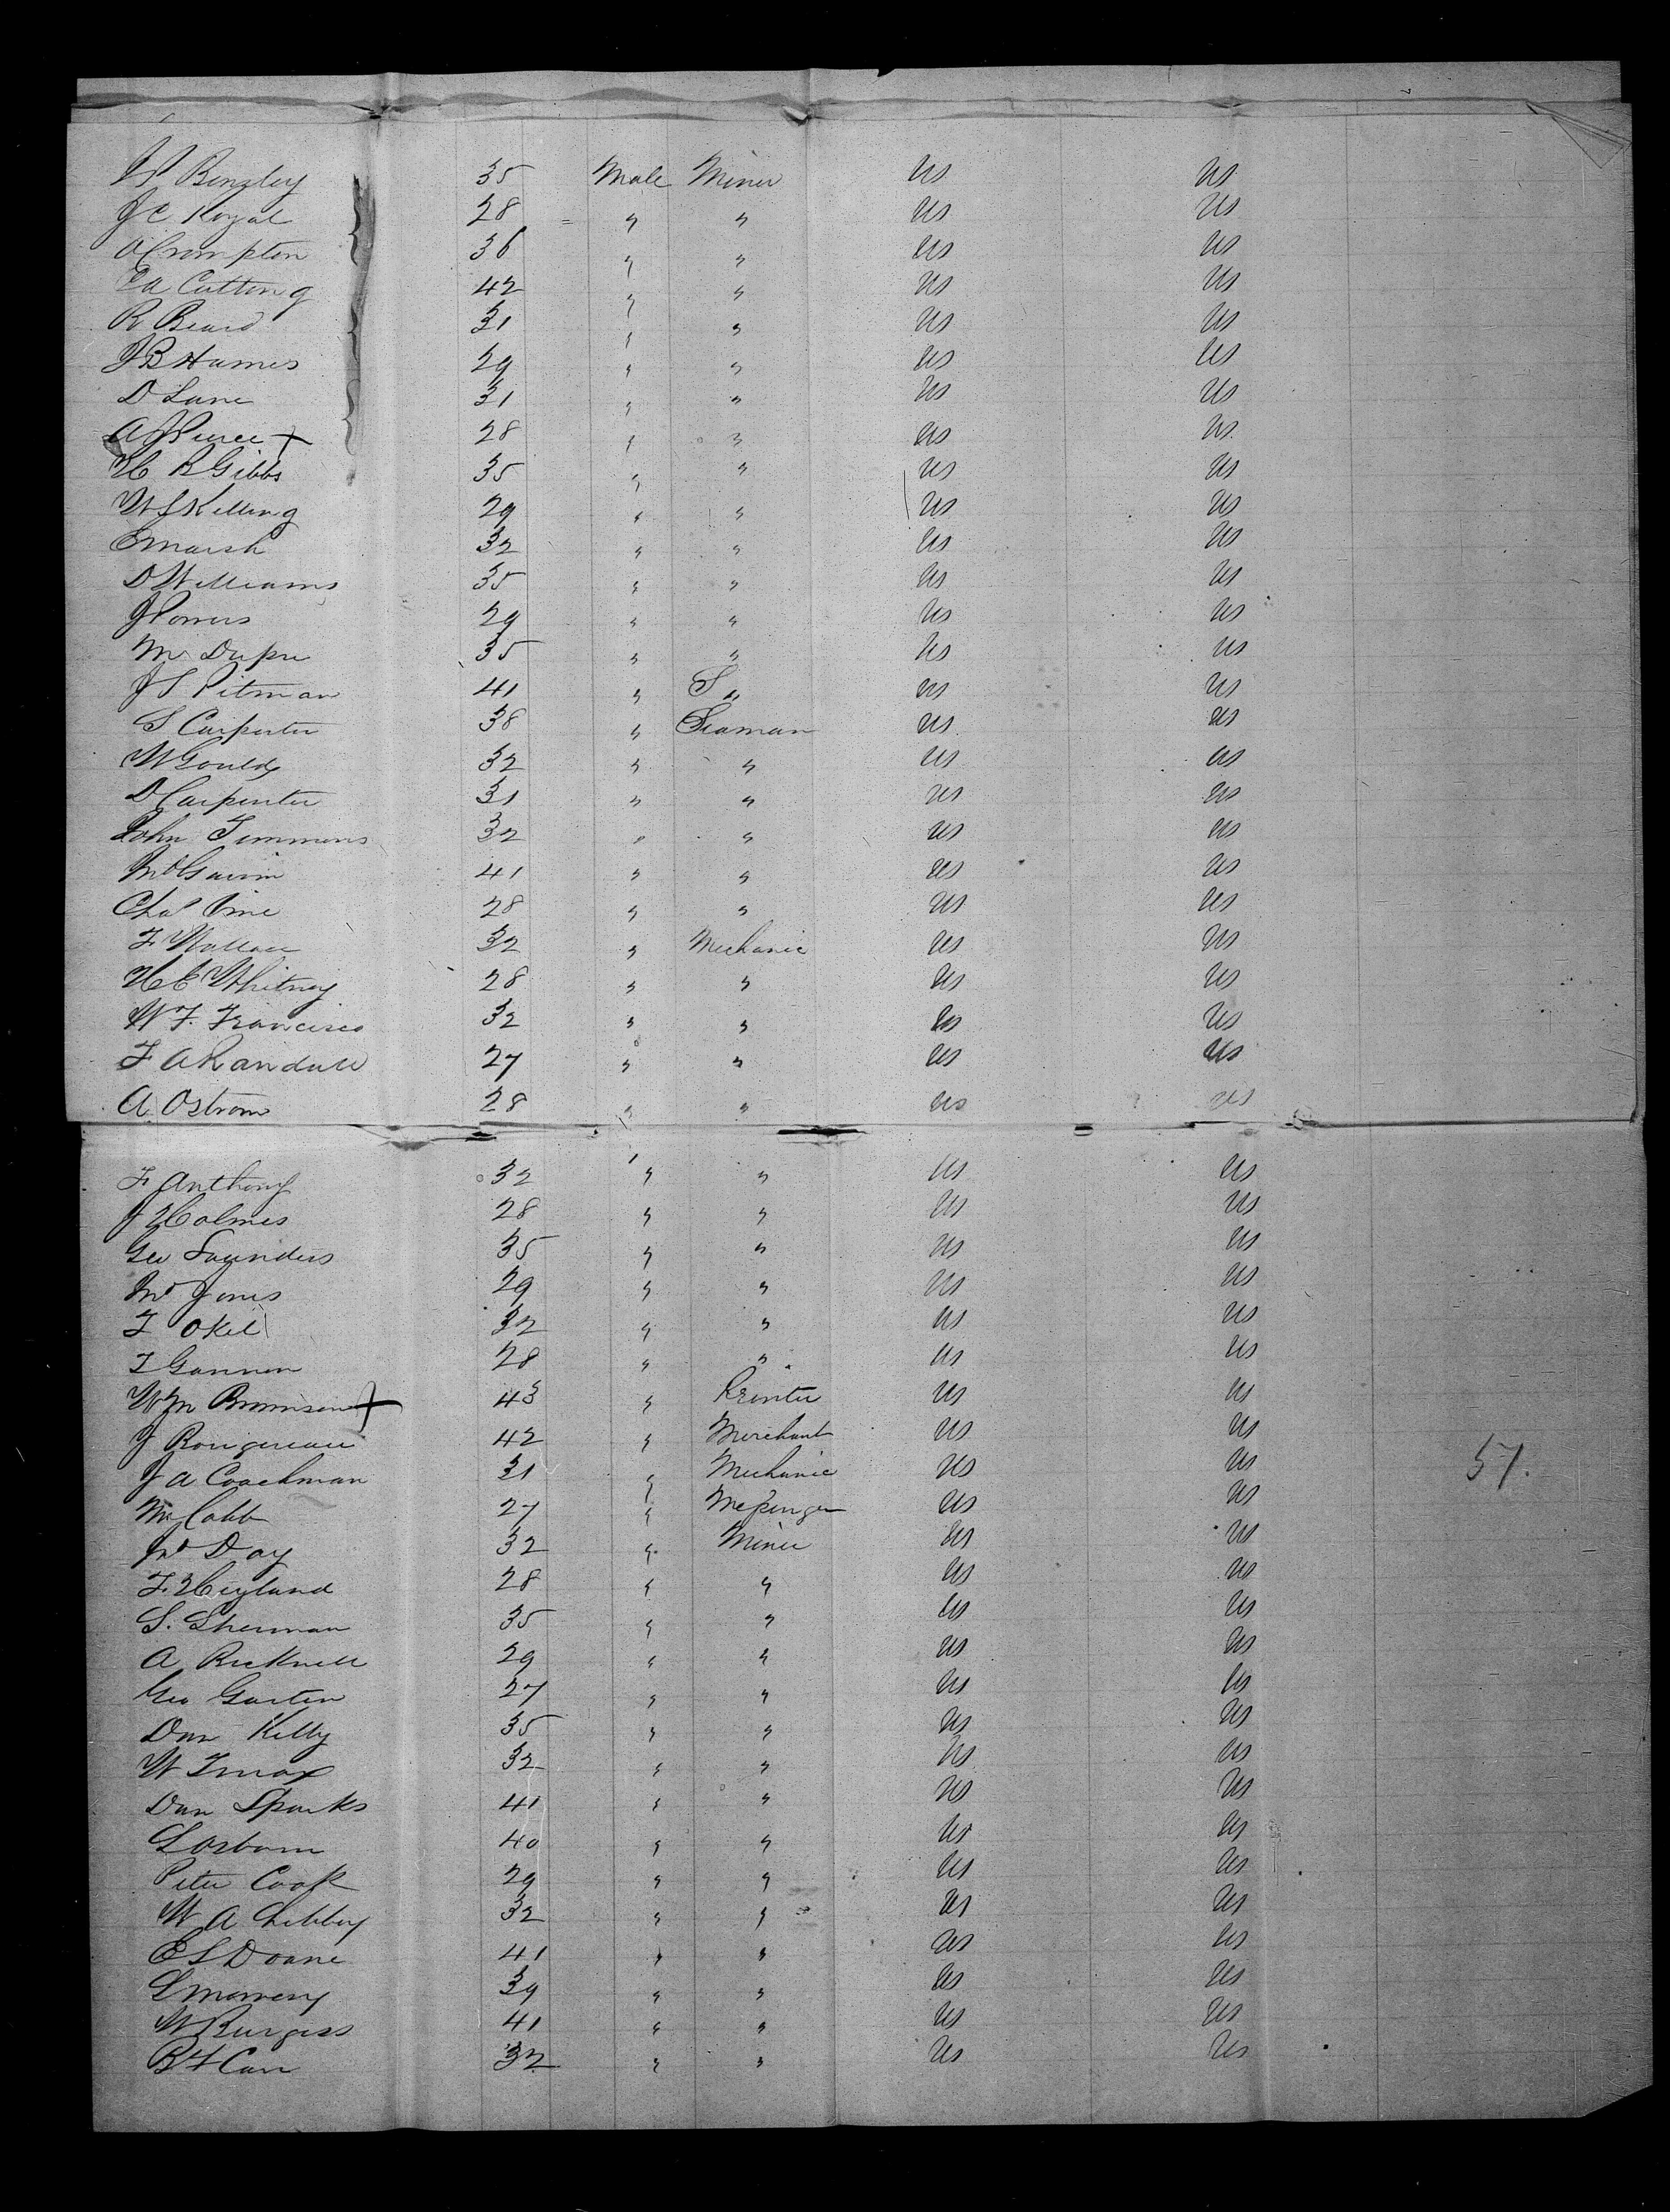 Benzley 35 Male Miner US US
J C Royal 28 " " US US
O Crompton 36 " " US US
E A Cutting 42 " " US US
R Beard 31 " " US US
J B Hames 29 " " US US
D Lane 31 " " US US
A J Pierce + 28 " " US US
H B Gibbs 35 " " US US
W S Kelling 29 " " US US
E Marsh 32 " " US US
D Williams 35 " " US US
J Powers 29 " " US US
M Dupre 35 " " US US
J S Pitman 41 " S " US US
S Carpenter 38 " Seaman US US
W Gould 32 " " US US
D Carpenter 31 " " US US
John Timmons 32 " " US US
41 " " US US
Chas Pine 28 " " US US
F Wallace 32 " Mechanic US US
H C Whitney 28 " " US US
W F. Francisco 32 " " US US
F A Randall 27 " " US US
A Ostrom 28 " " US US
F Anthony 32 " " US US
J Holmes 28 " " US US
Geo Saunders 35 " " US US
Jones 29 " " US US
F Okel 32 " " US US
T Gannon 28 " " US US
Wm Brunnison + 43 " Printer US US
J Rougereau 42 " Merchant US US
J A Coachman 31 " Mechanic US US 57.
Cobb 27 " Messenger US US
Day 32 " Miner US US
F. Heyland 28 " " US US
S. Sherman 35 " " US US
A Ricknell 29 " " US US
Geo Garten 27 " " US US
Dan Kelly 35 " " US US
W 32 " " US US
Dan Sparks 41 " " US US
L Osborn 40 " " US US
Peter Cook 29 " " US US
W A Libbey 32 " " US US
E S Doane 41 " " US US
L Mowery 39 " " US US
W Burgess 41 " " US US
B F Carr 32 " " US US